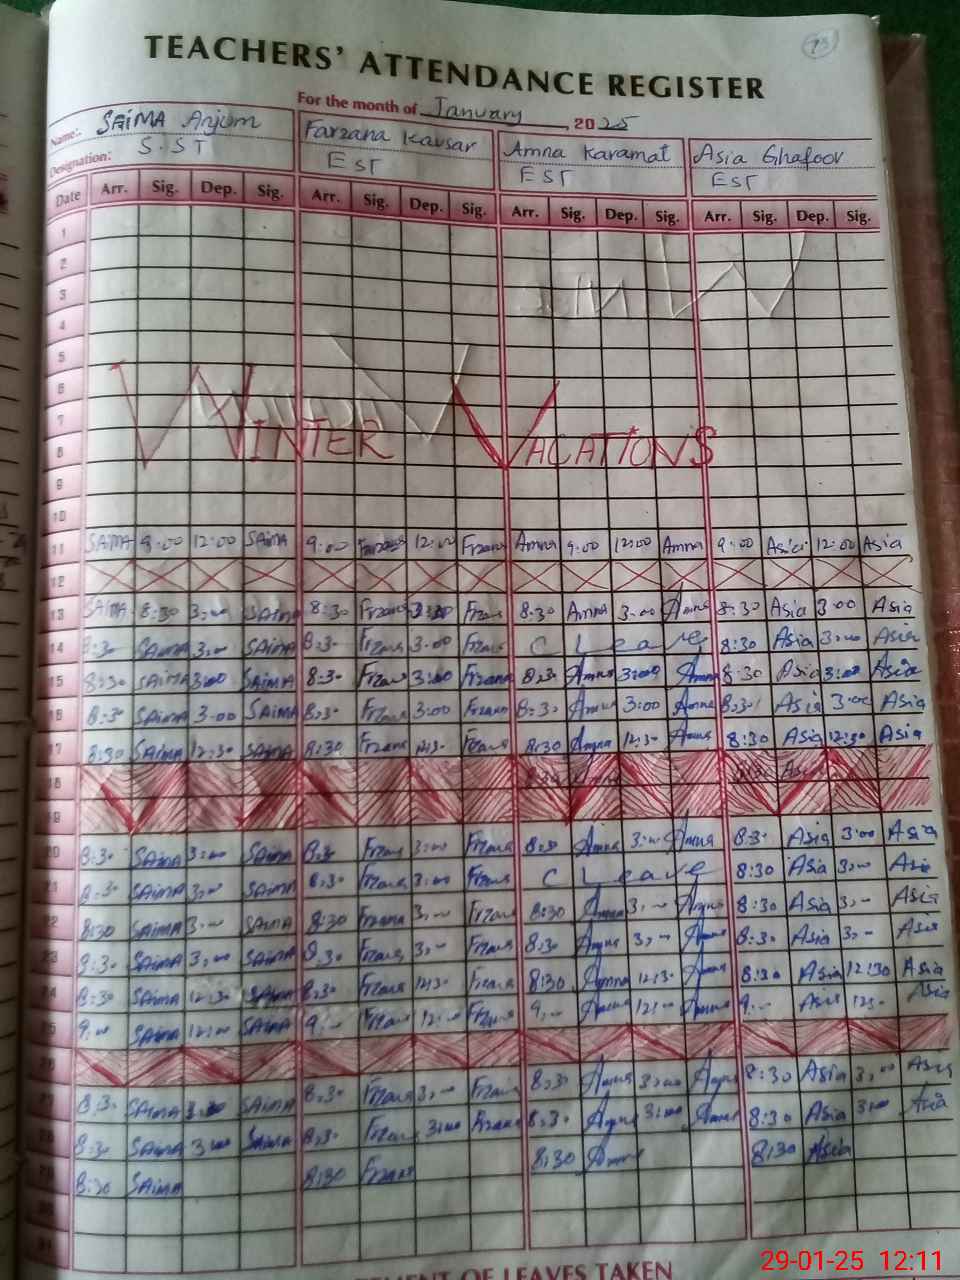 73
TEACHERS' ATTENDANCE REGISTER
For the month of January 2025
Name: SAIMA Anjum Farzana Kausar Amna Karamat Asia Ghafoor
Designation: S.ST EST EST EST
Date Arr. Sig. Dep. Sig. Arr. Sig. Dep. Sig. Arr. Sig. Dep. Sig. Arr. Sig. Dep. Sig.
1
2
3
4
5
6
7
8
WINTER VACATIONS
9
10
11 SAIMA 9:00 12:00 SAIMA 9:00 Frzana 12:00 Frzana Amna 9:00 12:00 Amna 9:00 Asia 12:00 Asia
12
13 SAIMA 8:30 3:00 SAIMA 8:30 Frzana 3:00 Frzana 8:30 Amna 3:00 Amna 8:30 Asia 3:00 Asia
14 8:30 SAIMA 3:00 SAIMA 8:30 Frzana 3:00 Frzana C Leave 8:30 Asia 3:00 Asia
15 8:30 SAIMA 3:00 SAIMA 8:30 Frzana 3:00 Frzana 8:30 Amna 3:00 Amna 8:30 Asia 3:00 Asia
16 8:30 SAIMA 3:00 SAIMA 8:30 Frzana 3:00 Frzana 8:30 Amna 3:00 Amna 8:30 Asia 3:00 Asia
17 8:30 SAIMA 12:30 SAIMA 8:30 Frzana 12:30 Frzana 8:30 Amna 12:30 Amna 8:30 Asia 12:30 Asia
18 8:30 Amna 8:30 Asia
19
20 8:30 SAIMA 3:00 SAIMA 8:30 Frzana 3:00 Frzana 8:30 Amna 3:00 Amna 8:30 Asia 3:00 Asia
21 8:30 SAIMA 3:00 SAIMA 8:30 Frzana 3:00 Frzana C Leave 8:30 Asia 3:00 Asia
22 8:30 SAIMA 3:00 SAIMA 8:30 Frzana 3:00 Frzana 8:30 Amna 3:00 Amna 8:30 Asia 3:00 Asia
23 8:30 SAIMA 3:00 SAIMA 8:30 Frzana 3:00 Frzana 8:30 Amna 3:00 Amna 8:30 Asia 3:00 Asia
24 8:30 SAIMA 12:30 SAIMA 8:30 Frzana 12:30 Frzana 8:30 Amna 12:30 Amna 8:30 Asia 12:30 Asia
25 9:00 SAIMA 12:00 SAIMA 9:00 Frzana 12:00 Frzana 9:00 Amna 12:00 Amna 9:00 Asia 12:00 Asia
26
27 8:30 SAIMA 3:00 SAIMA 8:30 Frzana 3:00 Frzana 8:30 Amna 3:00 Amna 8:30 Asia 3:00 Asia
28 8:30 SAIMA 3:00 SAIMA 8:30 Frzana 3:00 Frzana 8:30 Amna 3:00 Amna 8:30 Asia 3:00 Asia
29 8:30 SAIMA 8:30 Frzana 8:30 Amna 8:30 Asia
30
31
OF LEAVES TAKEN
29-01-25 12:11